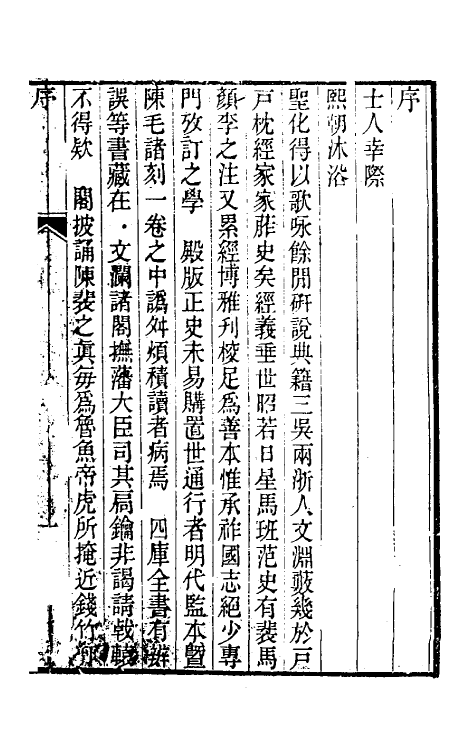 序
士人幸際
熙朝沐浴
聖化得以歌咏餘閒研說典籍三吳兩浙人文淵藪幾於戸
戸枕經家家胙史矣經義垂世昭若日星馬班范史有裴馬
顏李之注又累經博雅刋校足爲善本惟承祚國志絕少專
門攷訂之學　殿版正史未易購置世通行者明代監本曁
陳毛諸刻一卷之中譌舛煩積讀者病焉　四庫全書有辨
誤等書藏在．文瀾諸閣撫藩大臣司其扃鑰非謁請戟轅
不得欵　閣披誦陳裴之眞每爲魯魚帝虎所掩近錢竹
序